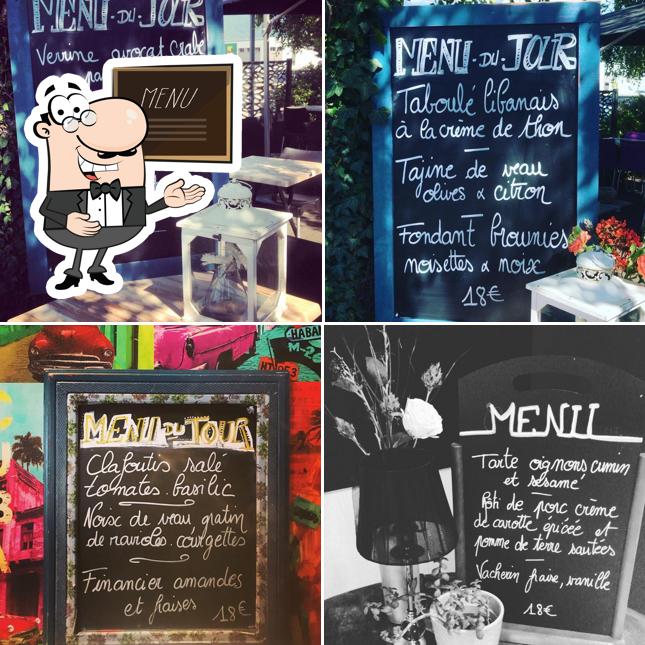 MENU DU JOUR
Verrine avocat crabe
MENU
MENU DU JOUR
Taboulé libanais
à la crème de thon
Tajine de veau
olives & citron
Fondant brownies
noisettes & noix
18€
HABAN
MENU DU JOUR
Clafoutis salé
tomates. basilic
Noix de veau gratin
de ravioles. courgettes
Financier amandes
et fraises
18€
MENU
Tarte oignons cumin
et sésame
Rôti de porc crème
de carotte épicée et
pomme de terre sautées
Vacherin fraise, vanille
18€